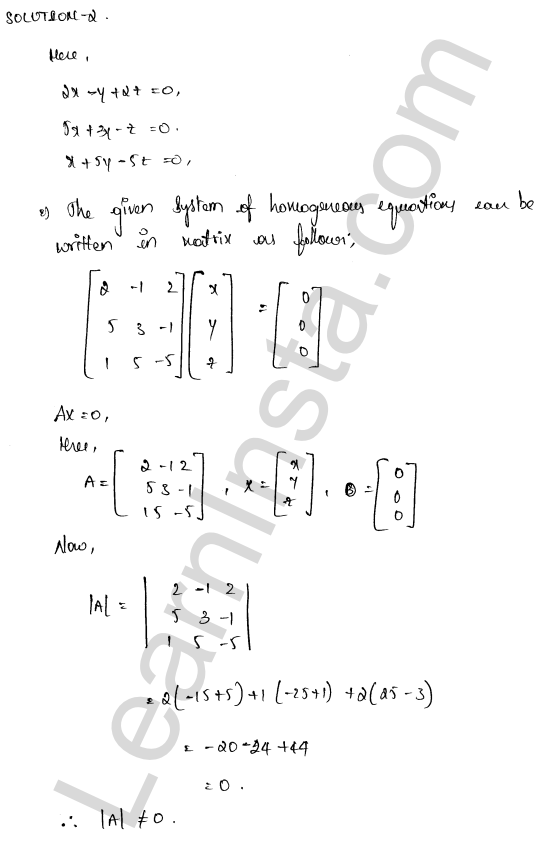 SOLUTION-2.
Here,
2x - y + 2z = 0,
5x + 3y - z = 0.
x + 5y - 5z = 0,
2) The given system of homogeneous equations can be
written in matrix as follows;
[2 -1 2] [x] = [0]
[5 3 -1] [y] [0]
[1 5 -5] [z] [0]
Ax = 0,
Here,
A = [2 -1 2; 5 3 -1; 1 5 -5], x = [x; y; z], B = [0; 0; 0]
Now,
|A| = |2 -1 2|
|5 3 -1|
|1 5 -5|
= 2(-15+5) + 1(-25+1) + 2(25-3)
= -20 - 24 + 44
= 0.
∴ |A| ≠ 0.
LearnInsta.com